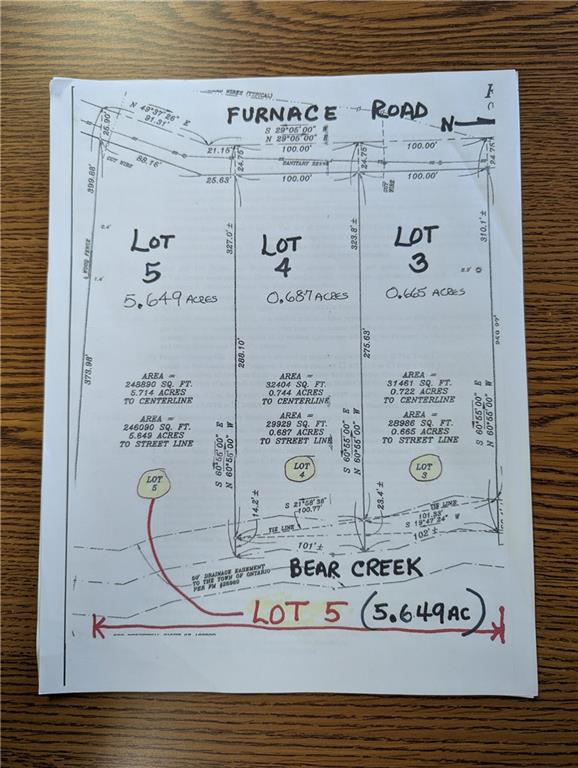 WIRES (TYPICAL)
FURNACE ROAD
N
N 49°37'26" E
91.31'
25.90'
88.16'
GUY WIRE
S 29°05'00" W
N 29°05'00" E
21.15'
100.00'
100.00'
24.75'
24.75'
24.75'
SANITARY SEWER
25.63'
100.00'
100.00'
GUY WIRE
399.68'
327.0' ±
323.8' ±
310.1' ±
LOT 5
5.649 ACRES
LOT 4
0.687 ACRES
LOT 3
0.665 ACRES
WOOD FENCE
373.98'
288.10'
275.63'
AREA =
248890 SQ. FT.
5.714 ACRES
TO CENTERLINE
AREA =
246090 SQ. FT.
5.649 ACRES
TO STREET LINE
AREA =
32404 SQ. FT.
0.744 ACRES
TO CENTERLINE
AREA =
29929 SQ. FT.
0.687 ACRES
TO STREET LINE
AREA =
31461 SQ. FT.
0.722 ACRES
TO CENTERLINE
AREA =
28986 SQ. FT.
0.665 ACRES
TO STREET LINE
S 60°55'00" E
N 60°55'00" W
S 60°55'00" E
N 60°55'00" W
S 60°55'00" E
N 60°55'00" W
LOT 5
LOT 4
LOT 3
14.2' ±
S 21°58'38"
100.77'
TIE LINE
23.4' ±
TIE LINE
101.33'
S 19°47'24" W
101' ±
102' ±
BEAR CREEK
50' DRAINAGE EASEMENT
TO THE TOWN OF ONTARIO
LOT 5 (5.649AC)